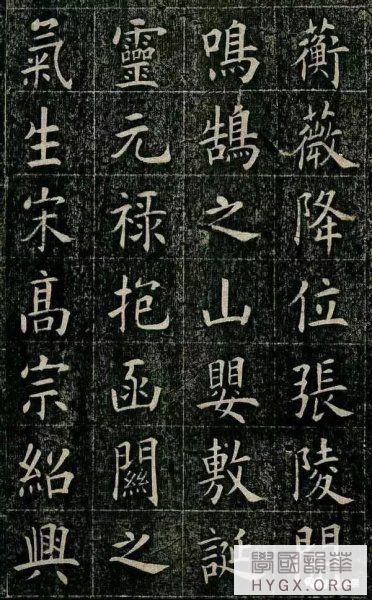 蘅薇降位張陵開
鳴鵠之山嬰敷誕
靈元禄抱函關之
氣生宋髙宗紹興
華韻國學
HYGX.ORG